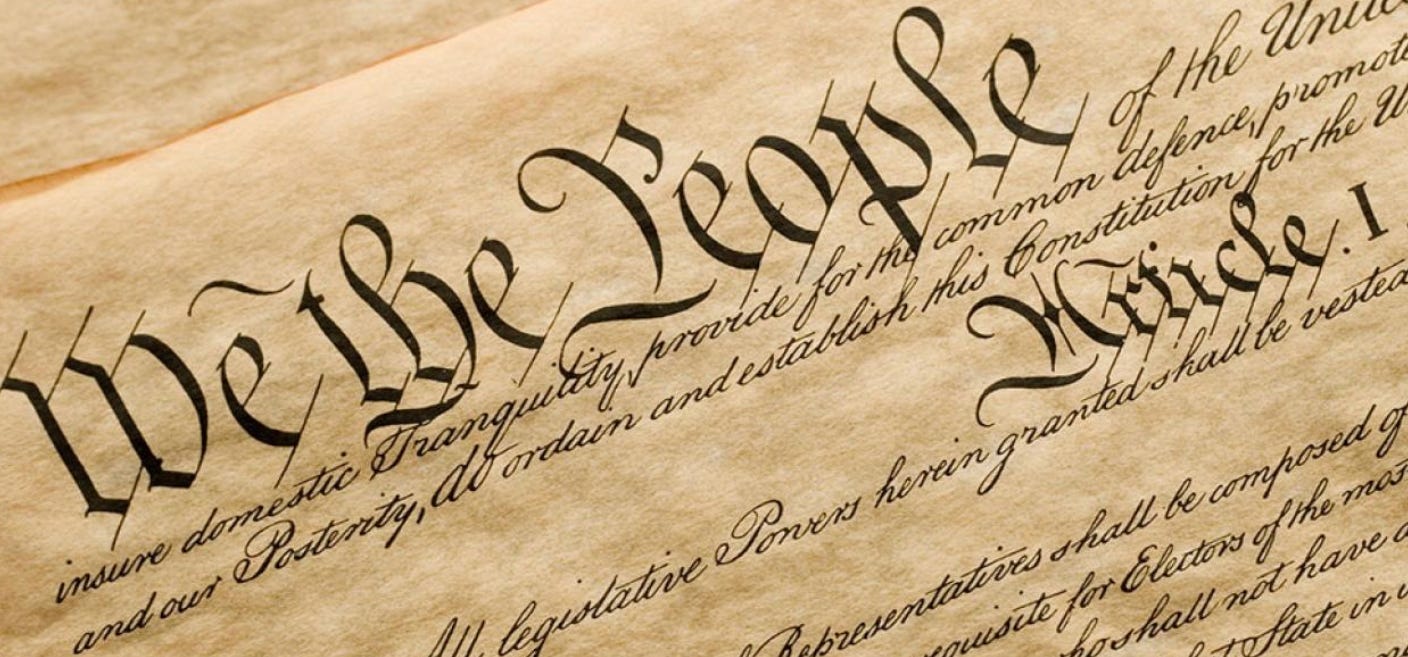 We the People of the United
insure domestic Tranquility, provide for the common defence, promote
and our Posterity, do ordain and establish this Constitution for the U
Article. I
All legislative Powers herein granted shall be vested
Representatives shall be composed of
equisite for Electors of the most
ho shall not have a
State in